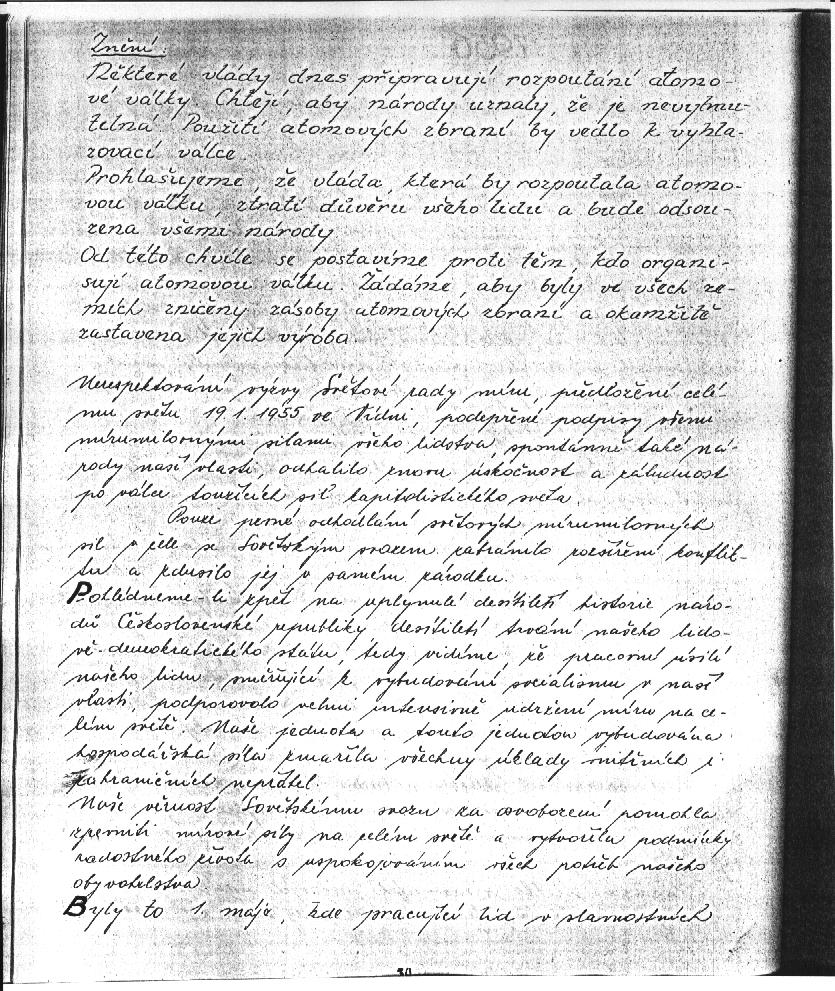 Znění:
Některé vlády dnes připravují rozpoutání atomo-
vé války. Chtějí, aby národy uznaly, že je nevyhnu-
telná. Použití atomových zbraní by vedlo k vyhla-
zovací válce.
Prohlašujeme, že vláda, která by rozpoutala atomo-
vou válku, ztratí důvěru všeho lidu a bude odsou-
zena všemi národy
Od této chvíle se postavíme proti těm, kdo organi-
sují atomovou válku. Žádáme, aby byly ve všech ze-
mích zničeny zásoby atomových zbraní a okamžitě
zastavena jejich výroba
Nerespektování výzvy Světové rady míru, předložené celé-
mu světu 19.1.1955 ve Vídni, podepřené podpisy všemi
mírumilovnými silami všeho lidstva, spontánně také ná-
rody naší vlasti, odhalilo znovu úskočnost a záludnost
po válce toužících sil kapitalistického světa.
Pouze pevné odhodlání světových mírumilovných
sil v čele se Sovětským svazem zabránilo rozšíření konflik-
tu a zdusilo jej v samém zárodku.
Pohlédneme-li zpět na uplynulé desítiletí historie náro-
dů Československé republiky desítiletí trvání našeho lido-
vě-demokratického státu, tedy vidíme, že pracovní úsilí
našeho lidu, směřující k vybudování socialismu v naší
vlasti, podporovalo velmi intensivně udržení míru na ce-
lém světě. Naše jednota a touto jednotou vybudována
hospodářská síla zmařila všechny úklady vnitřních i
zahraničních nepřátel.
Naše věrnost Sovětskému svazu za osvobození pomohla
zpevniti mírové síly na celém světě a vytvořila podmínky
radostného života s uspokojováním všech potřeb našeho
obyvatelstva
Byly to 1. máje, kde pracující lid v slavnostních
30